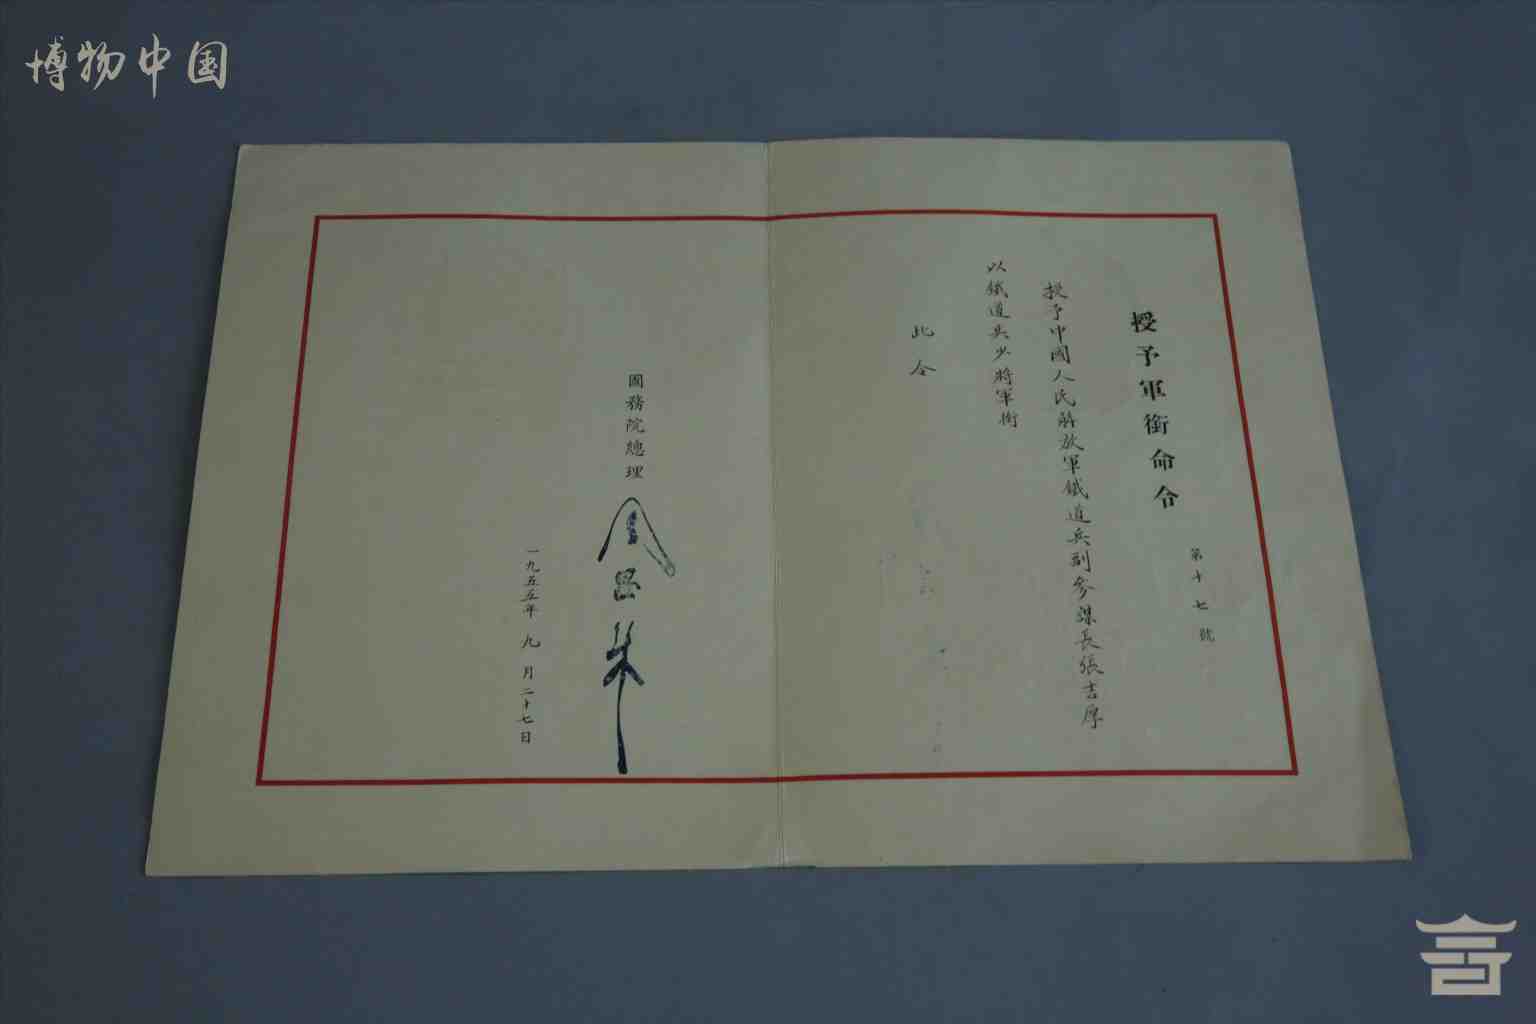 博物中国
授予軍銜命令
第十七號
授予中國人民解放軍鐵道兵副參謀長張吉厚
以鐵道兵少將軍銜
此令
國務院總理
周恩來
一九五五年九月二十七日